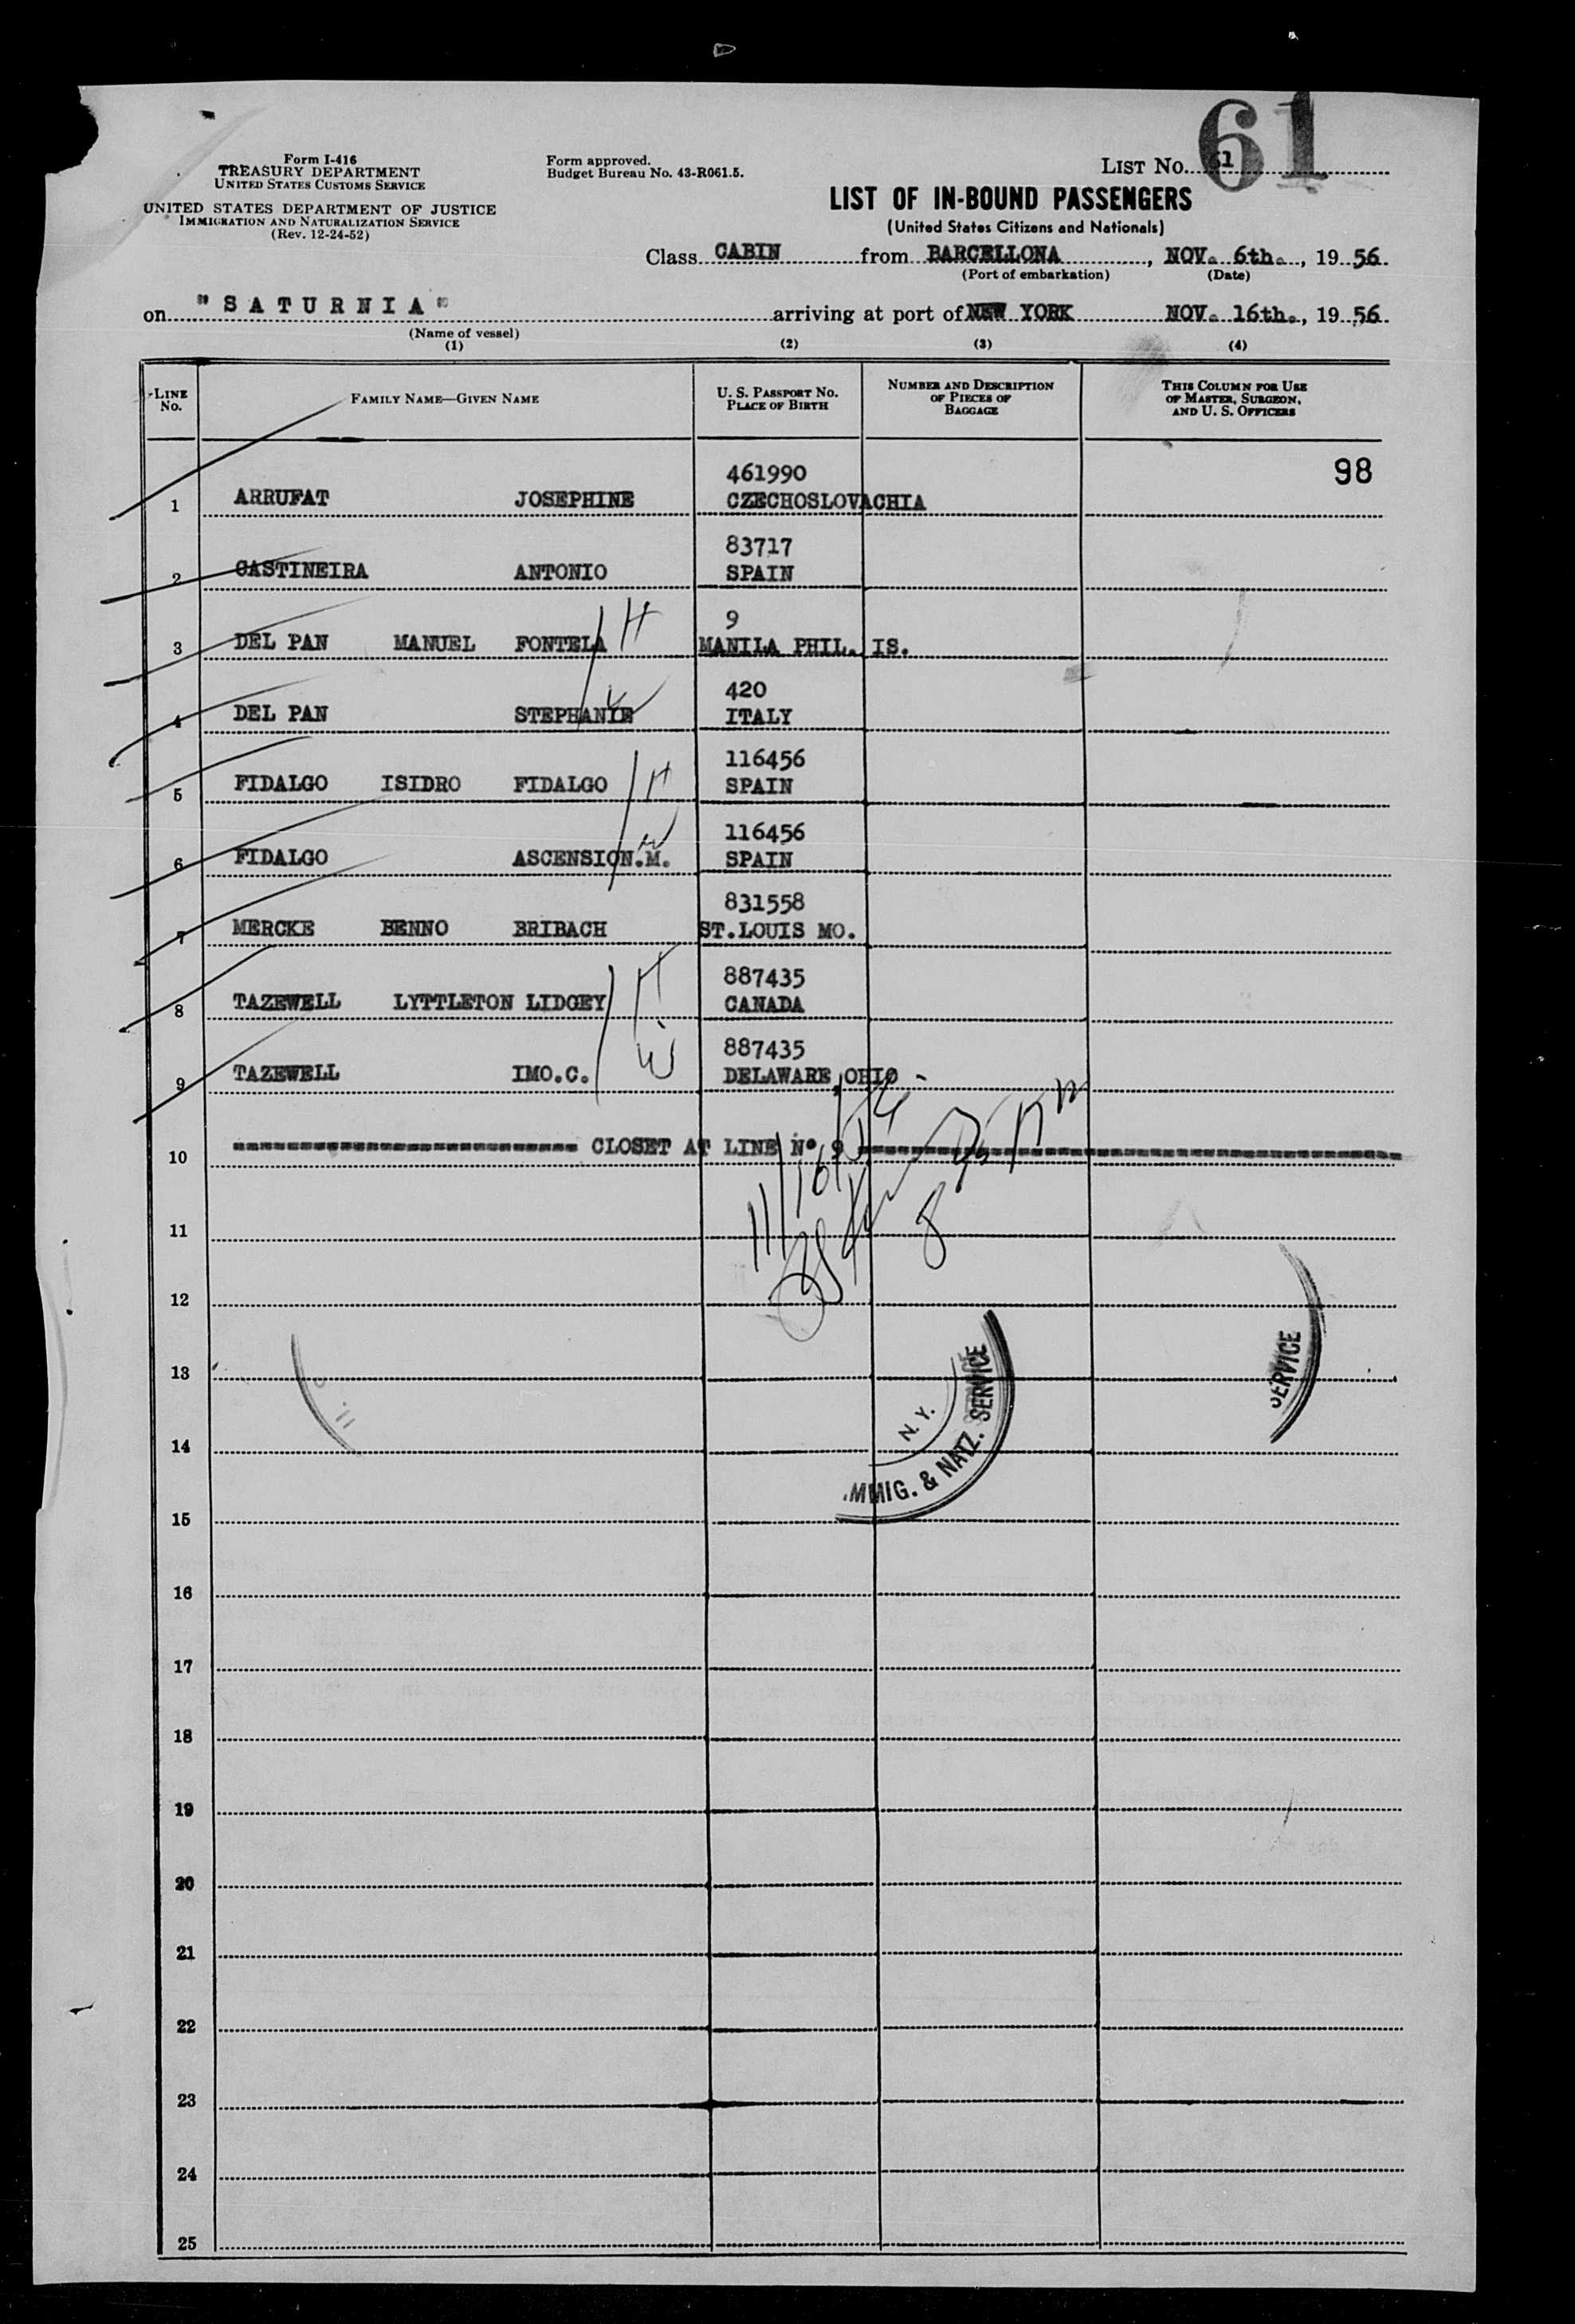 61
Form I-416
TREASURY DEPARTMENT
UNITED STATES CUSTOMS SERVICE
UNITED STATES DEPARTMENT OF JUSTICE
IMMIGRATION AND NATURALIZATION SERVICE
(Rev. 12-24-52)
Form approved.
Budget Bureau No. 43-R061.5.
LIST No. 61
LIST OF IN-BOUND PASSENGERS
(United States Citizens and Nationals)
Class CABIN from BARCELLONA, NOV. 6th., 19 56.
(Port of embarkation) (Date)
on "SATURNIA" arriving at port of NEW YORK NOV. 16th., 19 56.
(Name of vessel)
(1) (2) (3) (4)
LINE No. FAMILY NAME—GIVEN NAME U. S. PASSPORT No. PLACE OF BIRTH NUMBER AND DESCRIPTION OF PIECES OF BAGGAGE THIS COLUMN FOR USE OF MASTER, SURGEON, AND U. S. OFFICERS
461990 98
1 ARRUFAT JOSEPHINE CZECHOSLOVACHIA
83717
2 CASTINEIRA ANTONIO SPAIN
9
3 DEL PAN MANUEL FONTELA H MANILA PHIL. IS.
420
4 DEL PAN STEPHANIE W ITALY
116456
5 FIDALGO ISIDRO FIDALGO H SPAIN
116456
6 FIDALGO ASCENSION.M. W SPAIN
831558
7 MERCKE BENNO BRIBACH ST.LOUIS MO.
887435
8 TAZEWELL LYTTLETON LIDGEY H CANADA
887435
9 TAZEWELL IMO.C. DELAWARE, OHIO -
10 CLOSET AT LINE N° 9
11
12
13
14
15
16
17
18
19
20
21
22
23
24
25
N. Y.
IMMIG. & NATZ. SERVICE
SERVICE